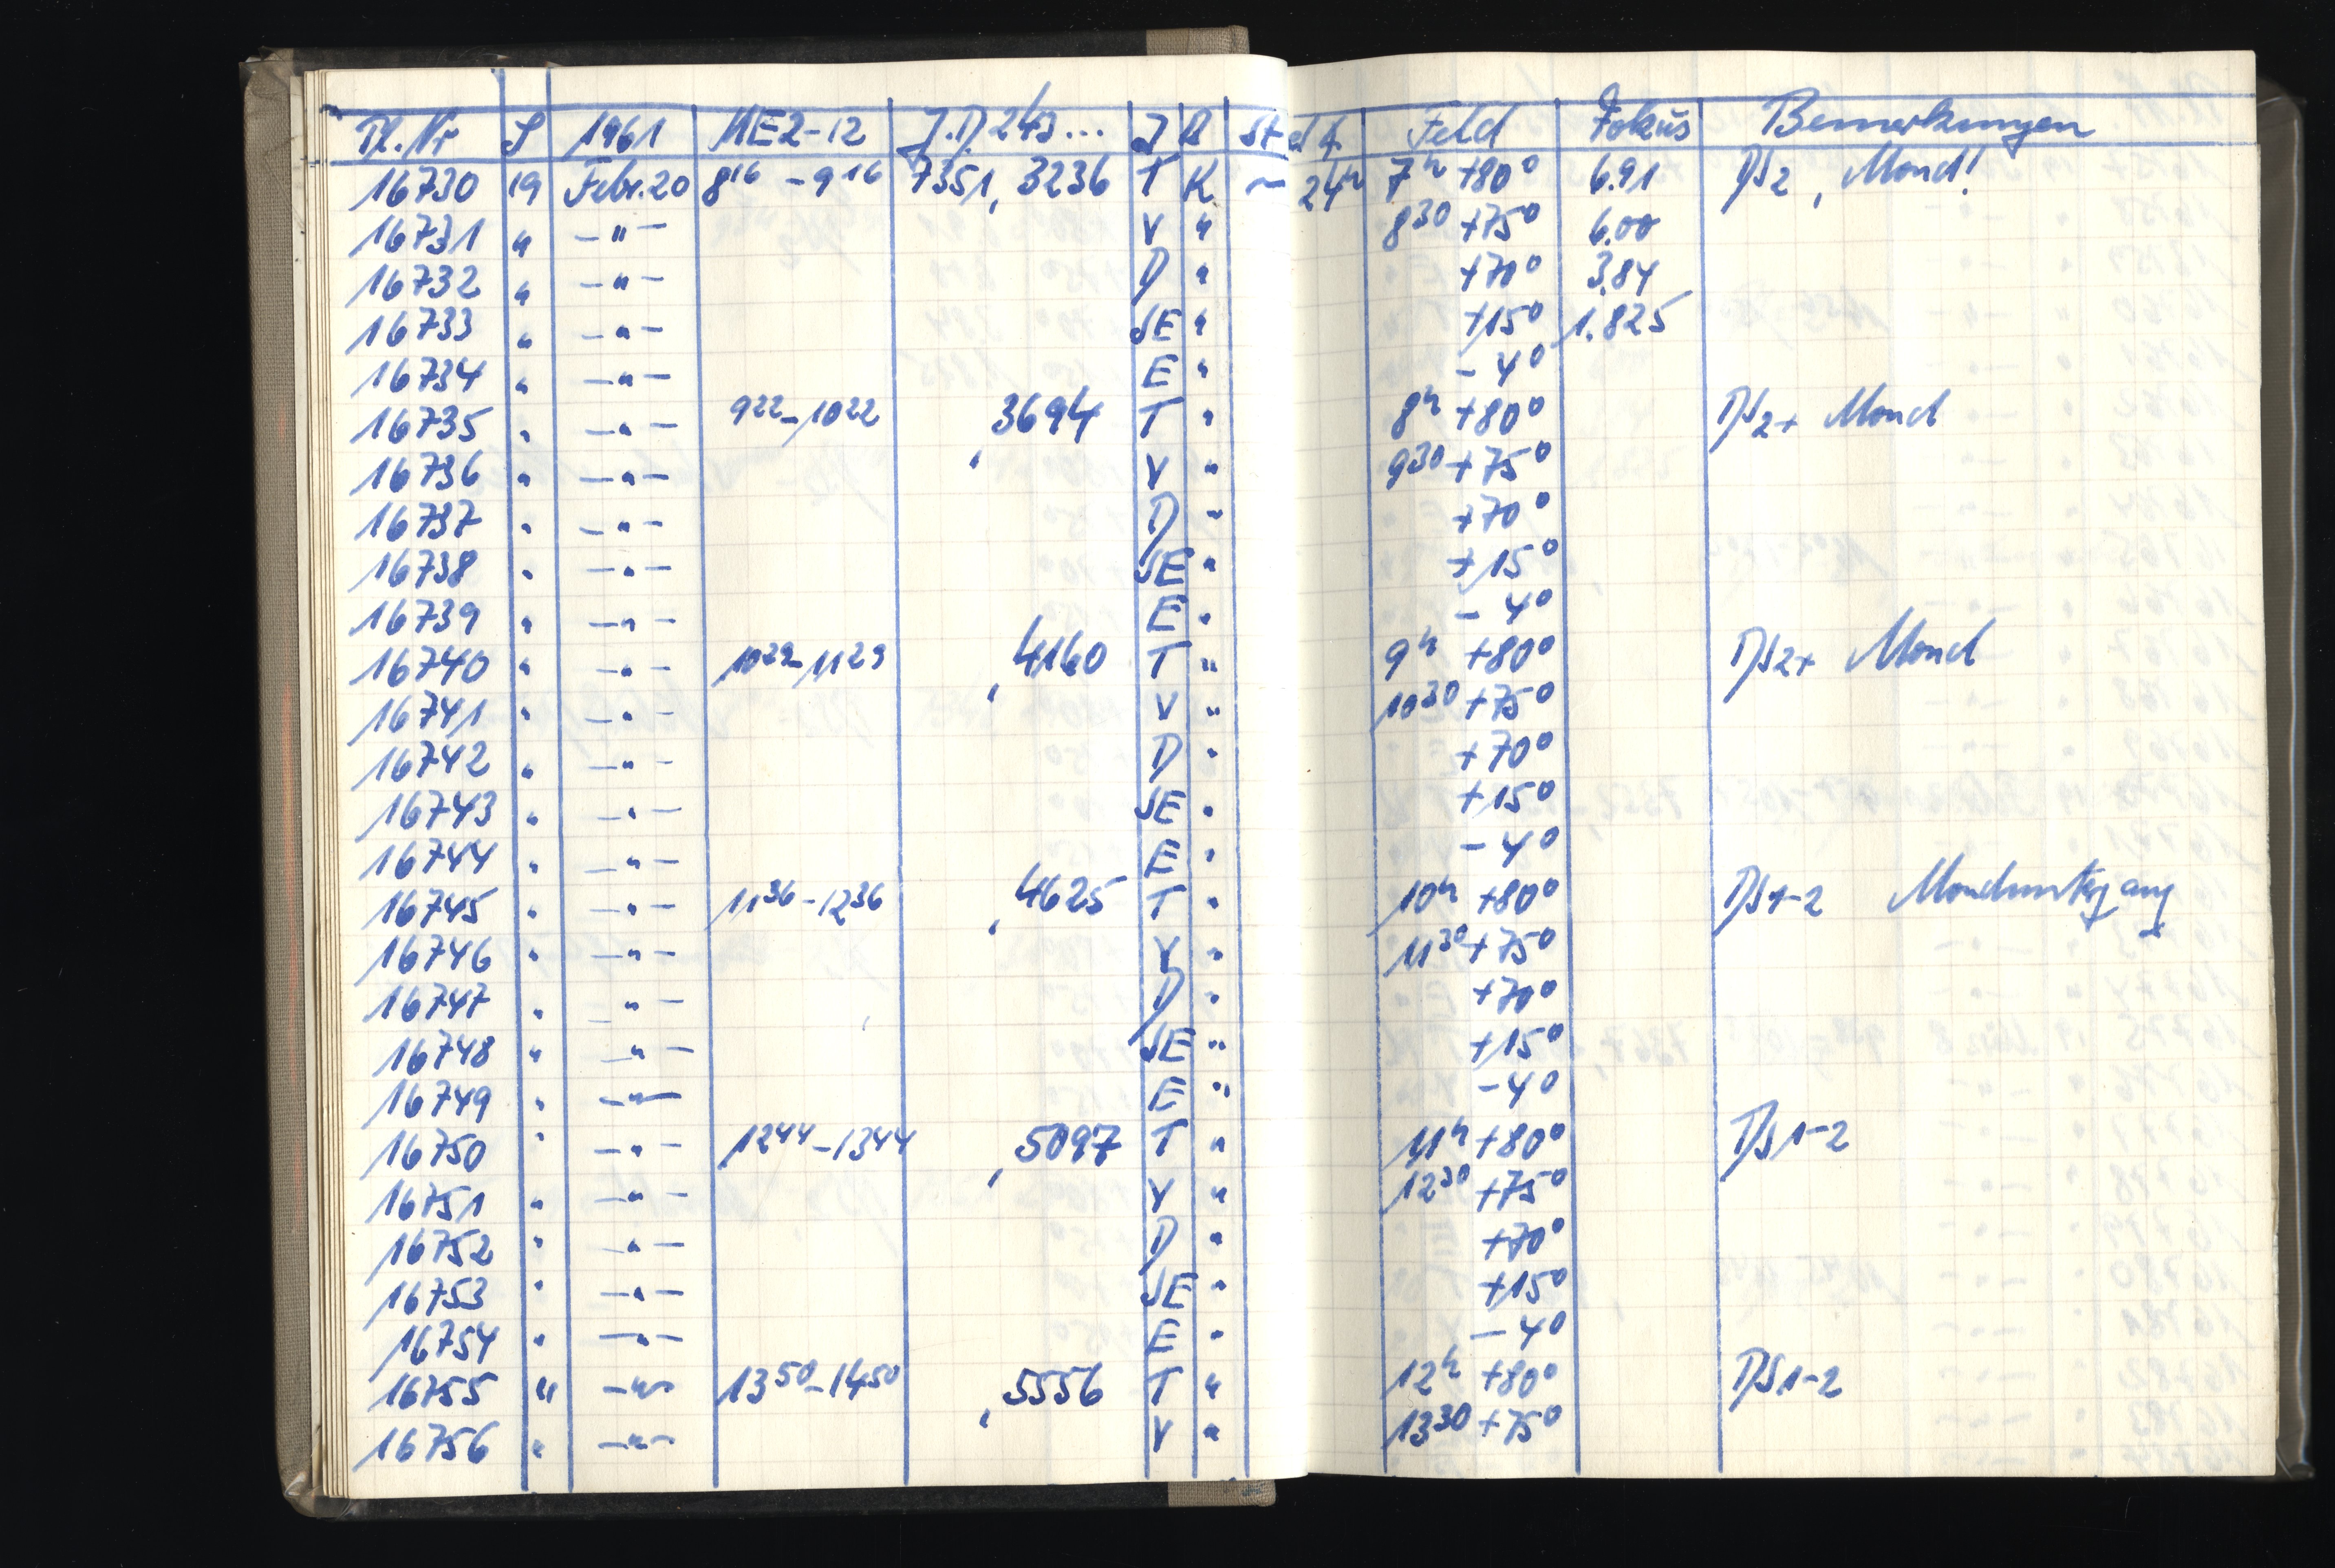 Pl. Nr S 1961 MEZ-12 J.D. 243... J B St St Feld Fokus Bemerkungen
16730 19 Febr. 20 8 16 - 9 16 7351, 3236 T K ~ 24h 7h +80° 6.91 DS2, Mond!
16731 " -"- V " 8 30 +75° 6.00
16732 " -"- D " +70° 3.84
16733 " -"- SE " +15° 1.825
16734 " -"- E " - 4°
16735 " -"- 9 22 - 10 22 , 3694 T " 8h +80° DS2+ Mond
16736 " -"- V " 9 30 +75°
16737 " -"- D " +70°
16738 " -"- SE " +15°
16739 " -"- E " - 4°
16740 " -"- 10 29 - 11 29 , 4160 T " 9h +80° DS2+ Mond
16741 " -"- V " 10 30 +75°
16742 " -"- D " +70°
16743 " -"- SE " +15°
16744 " -"- E " - 4°
16745 " -"- 11 36 - 12 36 , 4625 T " 10h +80° DS1-2 Monduntergang
16746 " -"- V " 11 30 +75°
16747 " -"- D " +70°
16748 " -"- SE " +15°
16749 " -"- E " - 4°
16750 " -"- 12 44 - 13 44 , 5097 T " 11h +80° DS1-2
16751 " -"- V " 12 30 +75°
16752 " -"- D " +70°
16753 " -"- SE " +15°
16754 " -"- E " - 4°
16755 " -"- 13 50 - 14 50 , 5556 T " 12h +80° DS1-2
16756 " -"- V " 13 30 +75°